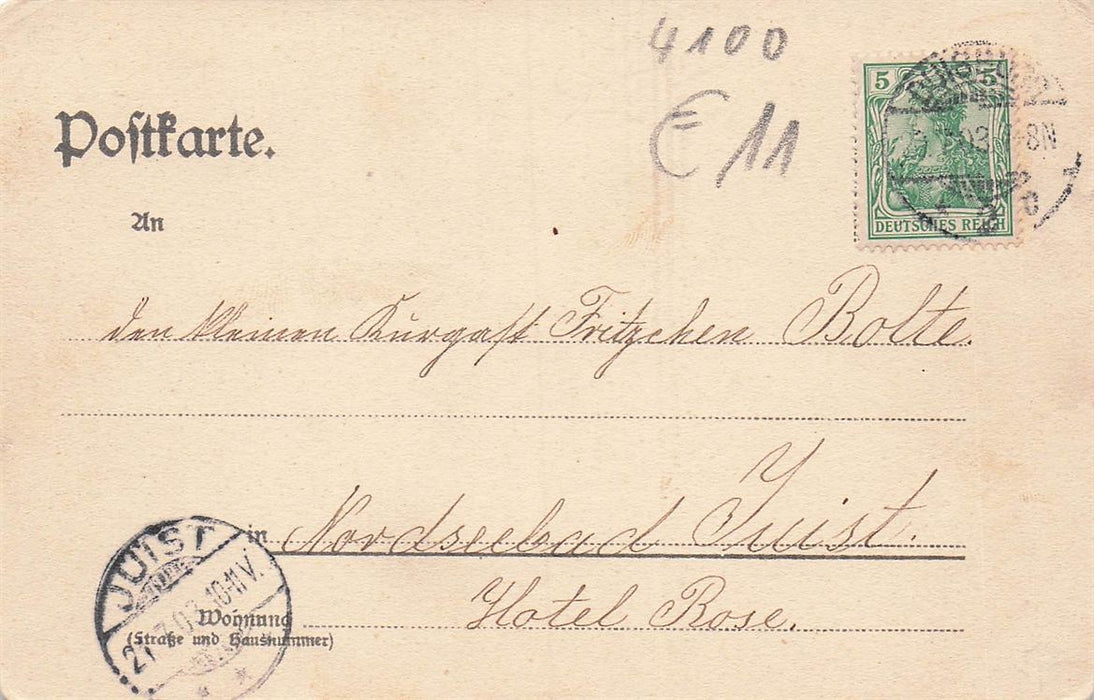 4100
€ 11
5 5
03 8N
DEUTSCHES REICH
Postkarte.
An
den kleinen Kurgast Fritzchen Bolte.
in Nordseebad Juist.
JUIST
10-11V.
Wohnung
(Straße und Hausnummer)
Hotel Rose.